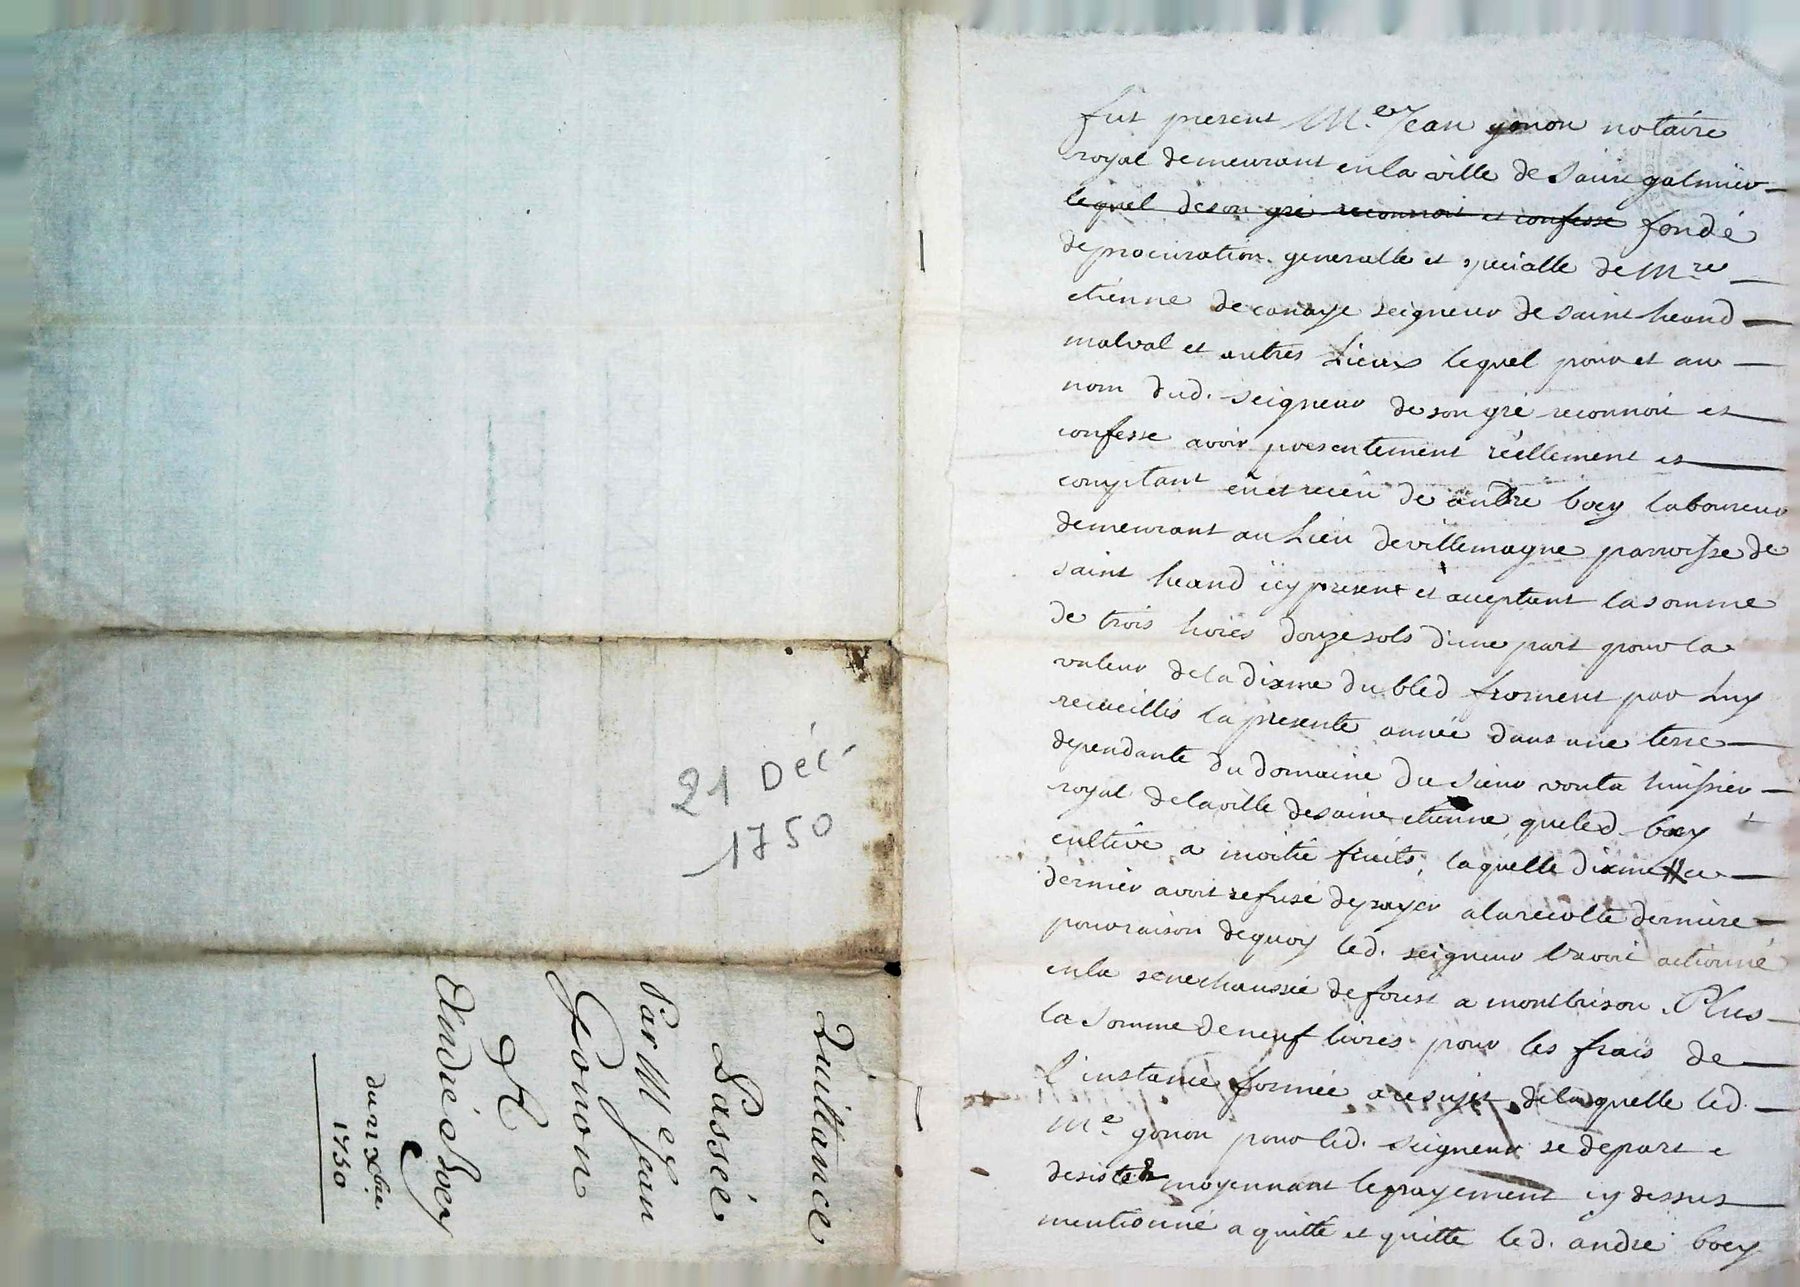 21 Déc.
1750
Quittance
Passée
Par Me Jean
Gonon
A
André Boey
du 21 xbre
1750
fut present Me. Jean gonon notaire
royal demeurant en la ville de Saint galmier
lequel de son gré reconnoit et confesse fondé
de procuration generalle et specialle de Mre
etienne de canaye seigneur de saint heand
malval et autres Lieux lequel pour et au
nom dud. seigneur de son gré reconnoit et
confesse avoir presentement réellement et
comptant eü et receü de andré boey laboureur
demeurant au Lieu de villemagne parroisse de
saint heand icy present et acceptant la somme
de trois livres douze sols d'une part pour la
valeur de la dixme du bled froment par Luy
recueillis la presente année dans une terre
dependante du domaine du sieur vouta huissier
royal de la ville de saint etienne que led. boey
cultive a moitié fruits, laquelle dixme ce
dernier avoit refusé de payer a la recolte derniere
pour raison de quoy led. seigneur l'avoit actionné
en la senechaussée de forest a montbrison. Plus
la somme de neuf livres pour les frais de
l'instance formée a ce sujet de laquelle led.
Me. gonon pour led. seigneur se depart e
desiste moyennant le payement cy dessus
mentionné a quitté et quitte led. andré boey